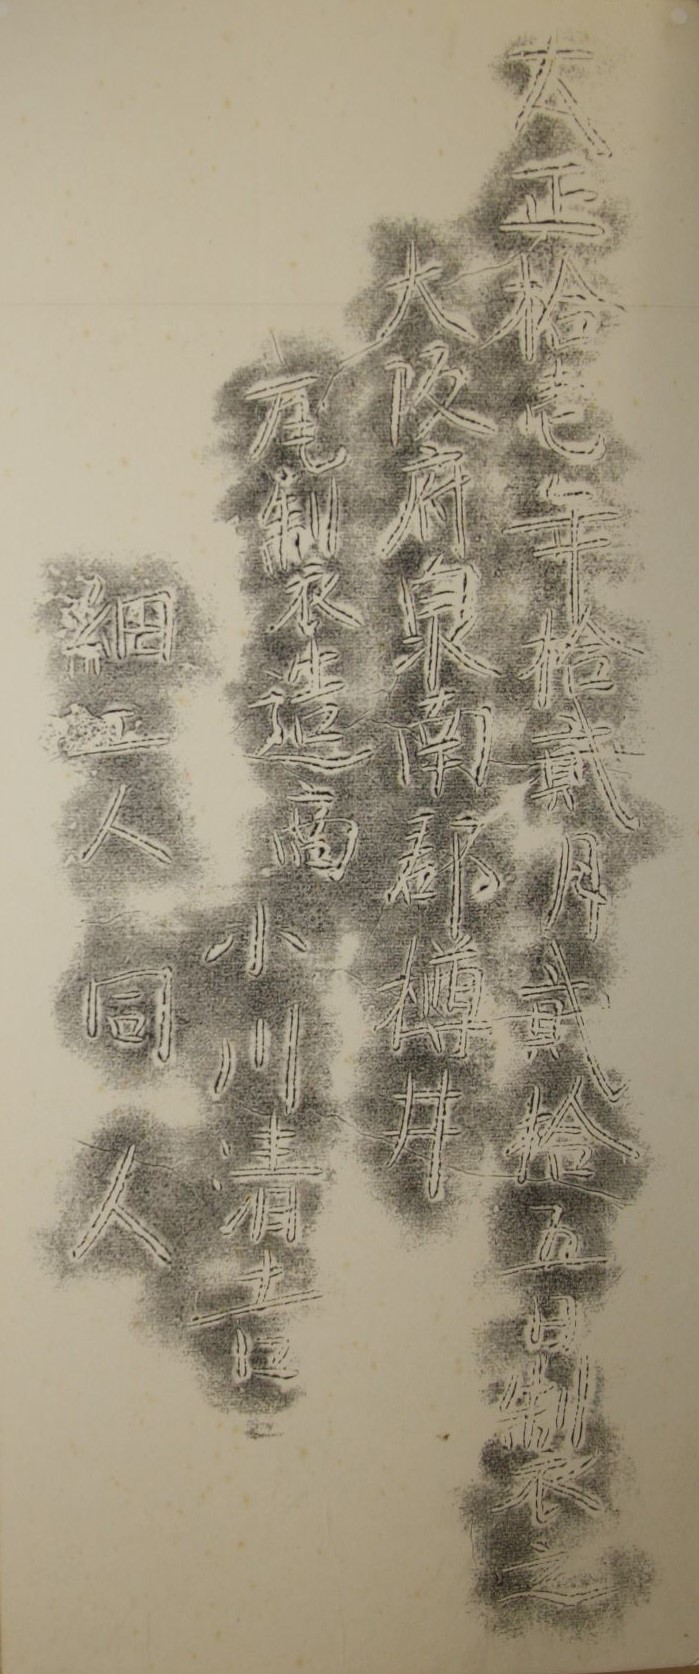 大正拾壱年拾貳月貳拾五日制衣之
大阪府泉南郡樽井
瓦制衣造商
小川清吉
細工人 同人